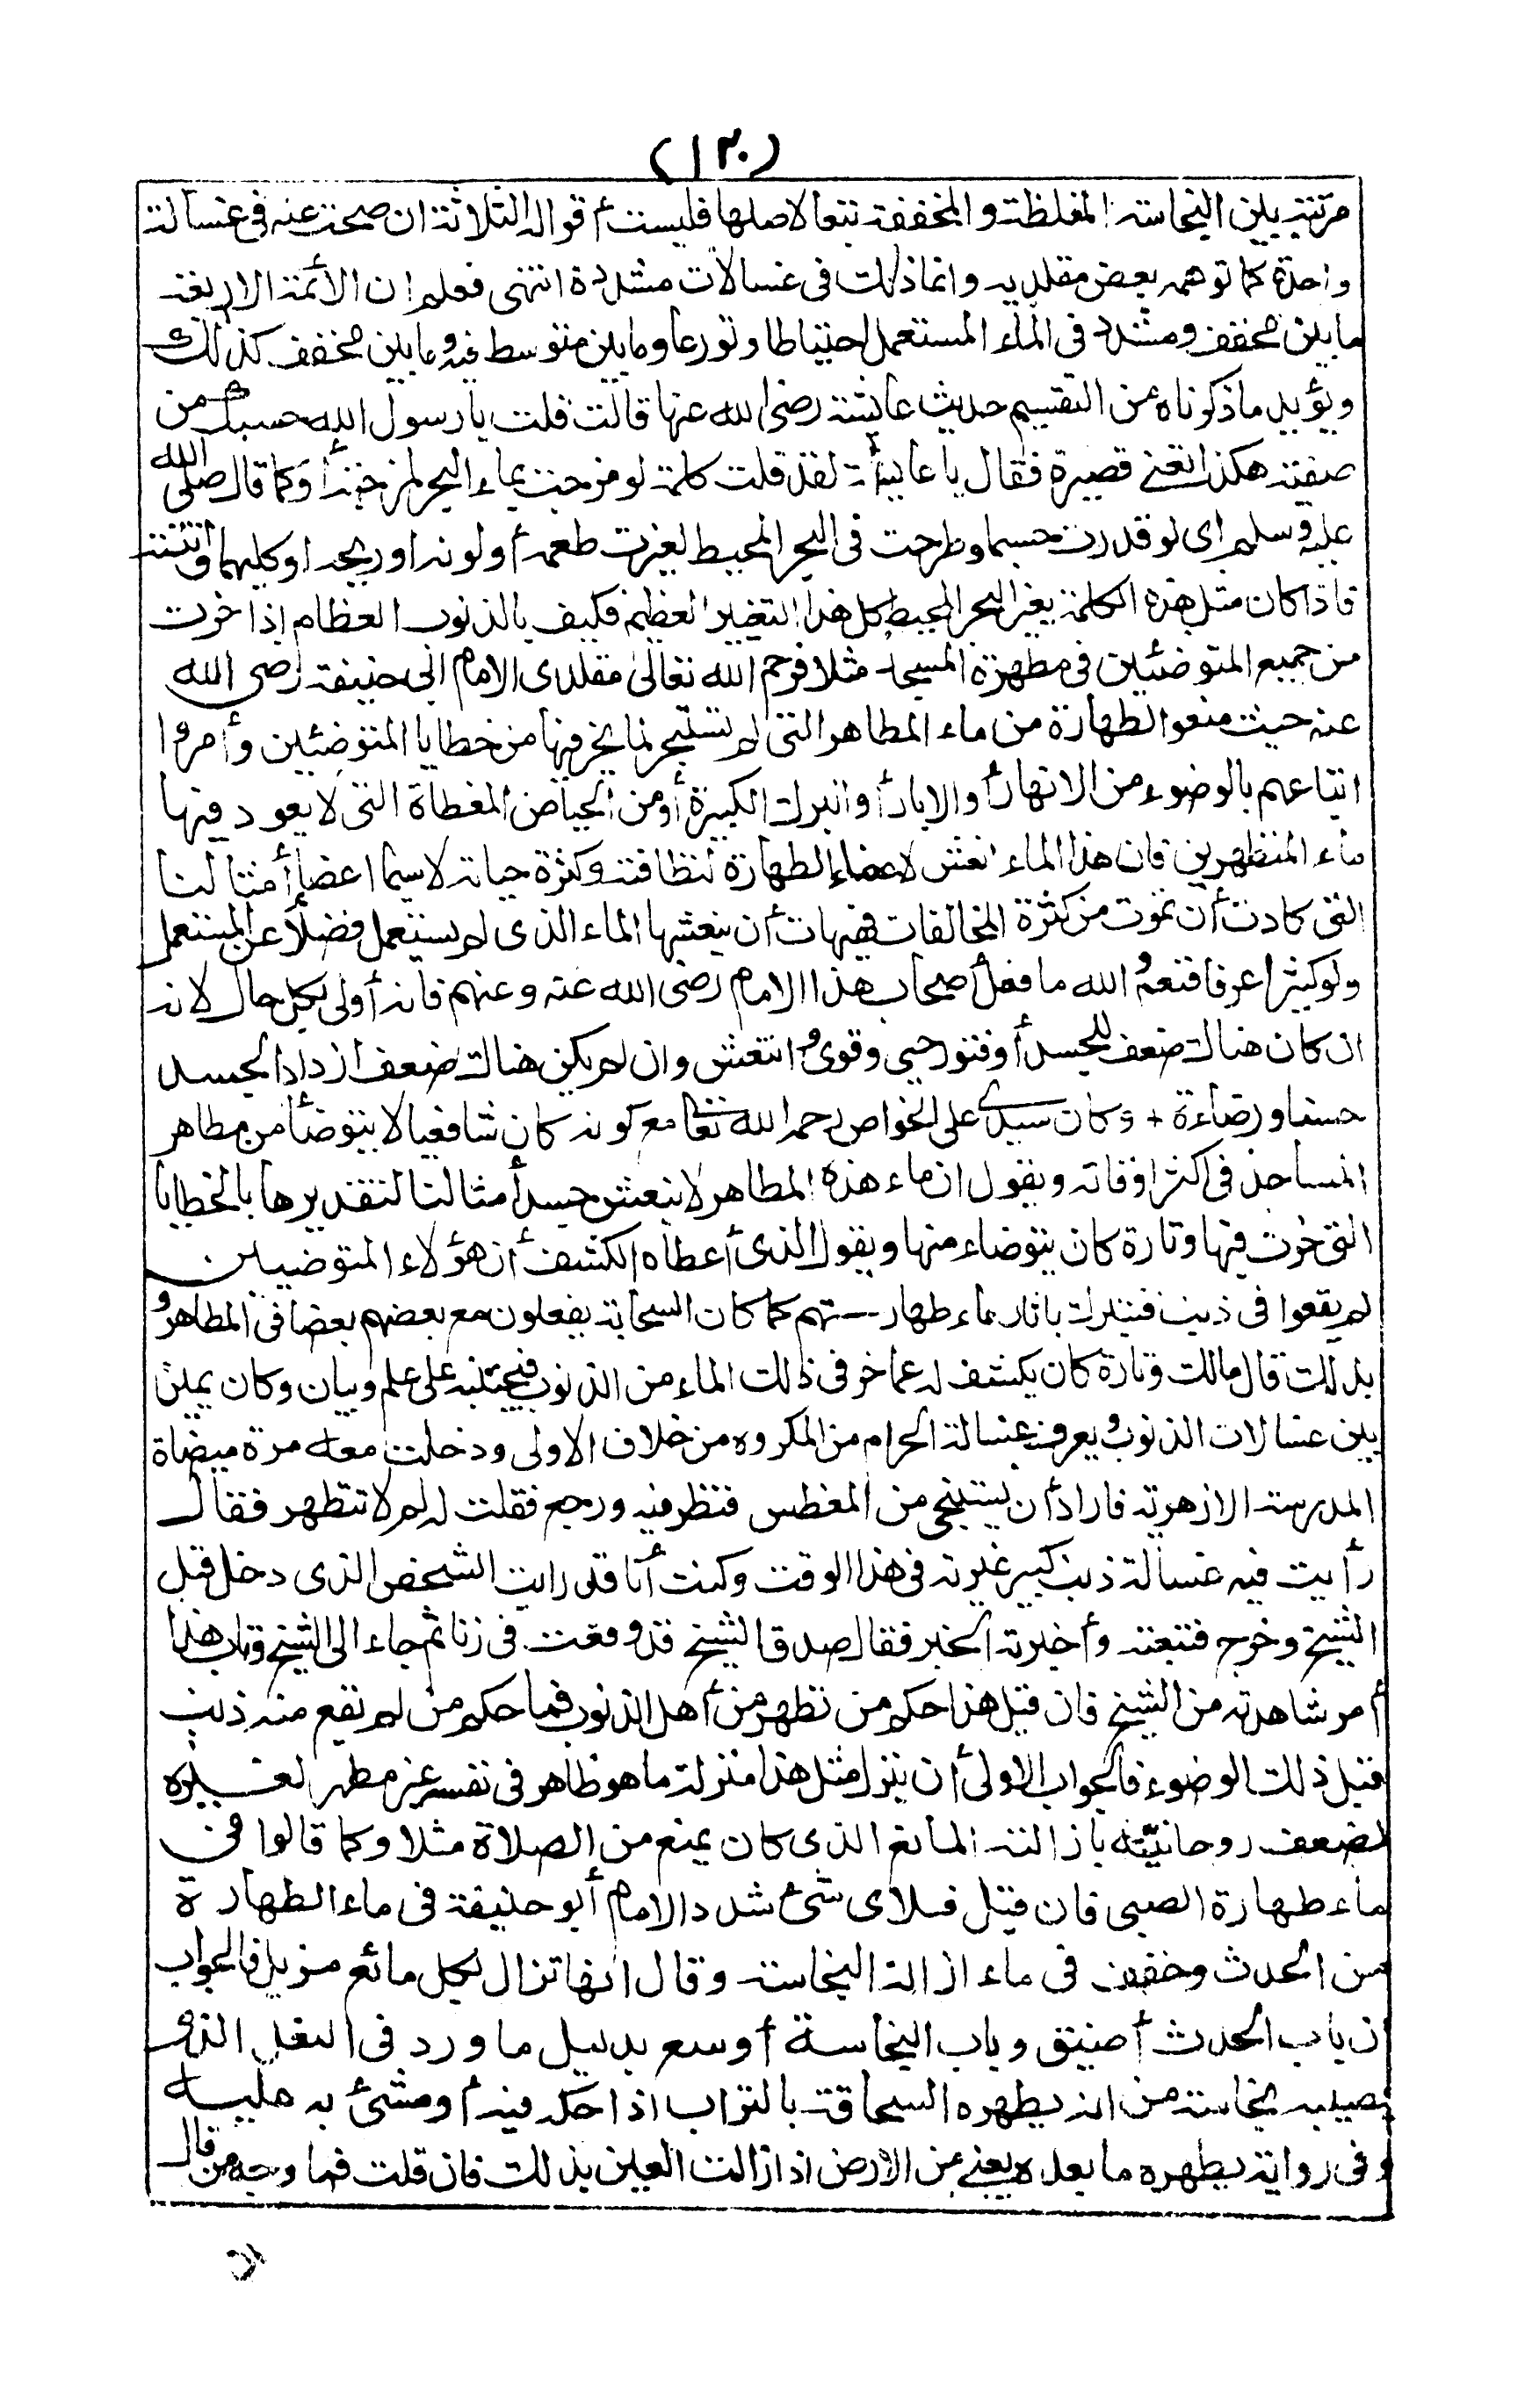 (١٣٠)
مرتبة بين النجاسة المغلظة والمخففة تبعا لاصلها فليست أقواله الثلاثة ان صحت عنه فى غسالة
واحدة كما توهمه بعض مقلديه وانما ذلك فى غسالات متعددة انتهى فعلم ان الأئمة الاربعة
ما بين مخفف ومشدد فى الماء المستعمل احتياطا وتورعا وما بين متوسط فيه وما بين مخفف كذلك
ويؤيد ما ذكرناه من التقسيم حديث عائشة رضى الله عنها قالت قلت يا رسول الله حسبك من
صفية هكذا تعنى قصيرة فقال يا عائشة لقد قلت كلمة لو مزجت بماء البحر لمزجته أو كما قال صلى الله
عليه وسلم اى لو قدرت جسما وطرحت فى البحر المحيط لغيرت طعمه أو لونه او ريحه او كليهما وانتنته
فاذا كان مثل هذه الكلمة يغير البحر المحيط كل هذا التغيير العظيم فكيف بالذنوب العظام اذا خرت
من جميع المتوضئين فى مطهرة المسجد مثلا فرحم الله تعالى مقلدى الامام ابى حنيفة رضى الله
عنه حيث منعوا الطهارة من ماء المطاهر التى لم تستبحر لما يخر فيها من خطايا المتوضئين وأمروا
اتباعهم بالوضوء من الانهار أو الابار أو البرك الكبيرة أو من الحياض المغطاة التى لا يعود فيها
ماء المتطهرين فان هذا الماء انعش لاعضاء الطهارة لنظافته وكثرة حياته لاسيما اعضاء أمثالنا
التى كادت أن تموت من كثرة المخالفات فهيهات أن ينعشها الماء الذى لم يستعمل فضلا عن المستعمل
ولو كثيرا عرفا فنعم والله ما فعل أصحاب هذا الامام رضى الله عنه وعنهم فانه أولى بكل حال لانه
ان كان هناك ضعف للجسد أو فتور حيى وقوى وانتعش وان لم يكن هناك ضعف ازداد الجسد
حسنا ورضاءة + وكان سيدى على الخواص رحمه الله تعا مع كونه كان شافعيا لا يتوضأ من مطاهر
المساجد فى اكثر اوقاته ويقول ان ماء هذه المطاهر لا ينعش جسد أمثالنا لتقذيرها بالخطايا
التى خرت فيها وتارة كان يتوضاء منها ويقول الذى أعطاه الكشف أن هؤلاء المتوضيين
لم يقعوا فى ذنب فنتبرك باثار ماء طهارتهم كما كان السحابة يفعلون مع بعضهم بعضا فى المطاهر و
بذلك قال مالك وتارة كان يكشف له عما خر فى ذلك الماء من الذنوب فيجتنبه على علم وبيان وكان يميز
بين غسالات الذنوب ويعرف غسالة الحرام من المكروه من خلاف الاولى ودخلت معه مرة ميضاة
المدرسة الازهرية فاراد أن يستنجى من المغطس فنظر فيه ورجع فقلت له لم لا تتطهر فقال
رأيت فيه غسالة ذنب كبير غيرته فى هذا الوقت وكنت أنا قد رايت الشخص الذى دخل قبل
الشيخ وخرج فتبعته وأخبرته الخبر فقال صدق الشيخ قد وقعت فى زنا ثم جاء الى الشيخ وتاب هذا
أمر شاهدته من الشيخ فان قيل هذا حكم من تطهر من أهل الذنوب فما حكم من لم تقع منه ذنب
قبل ذلك الوضوء فالجواب الاولى أن ينزل مثل هذا منزلة ما هو طاهر فى نفسه غير مطهر لغيره
لضعف روحانيته بازالته المانع الذى كان يمنع من الصلاة مثلا وكما قالوا فى
ماء طهارة الصبى فان قيل فلاى شئ شدد الامام أبو حنيفة فى ماء الطهارة
من الحدث وخفف فى ماء ازالة النجاسة وقال انها تزال بكل مائع مزيل فالجواب
ان باب الحدث أضيق وباب النجاسة أوسع بدليل ما ورد فى النعل الذى
تصيبه نجاسة من انه يطهره السحاقة بالتراب اذا حكه فيه أو مشئ به عليه
وفى رواية يطهره ما بعده يعنى من الارض اذا زالت العين بذلك فان قلت فما وجه من قال